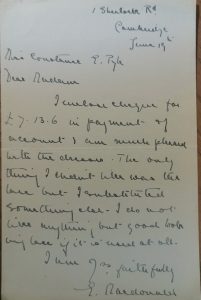 1 Sherlock Rd
Cambridge
June 19th
Miss Constance E. Pyke
Dear Madam
I enclose cheque for
£7.13.6 in payment of
account & am much pleased
with the dresses. The only
thing I didn't like was the
lace but I substituted
something else. I do not
like anything but good
lace if it is used at all.
I am Yrs faithfully
E. Macdonald